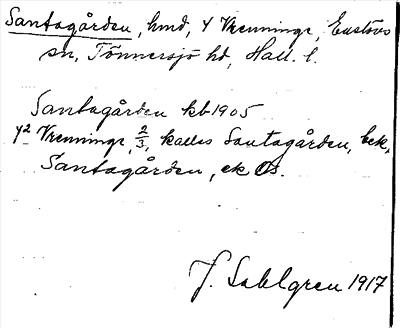 Santagården, hmd, Y Vrenninge, Enslövs
sn, Tönnersjö hd, Hall. l.
Santagården kb 1905
Y2 Vrenninge, 2/3, kallas Santagården, bek.
Santagården, ek Os.
J. Sahlgren 1917